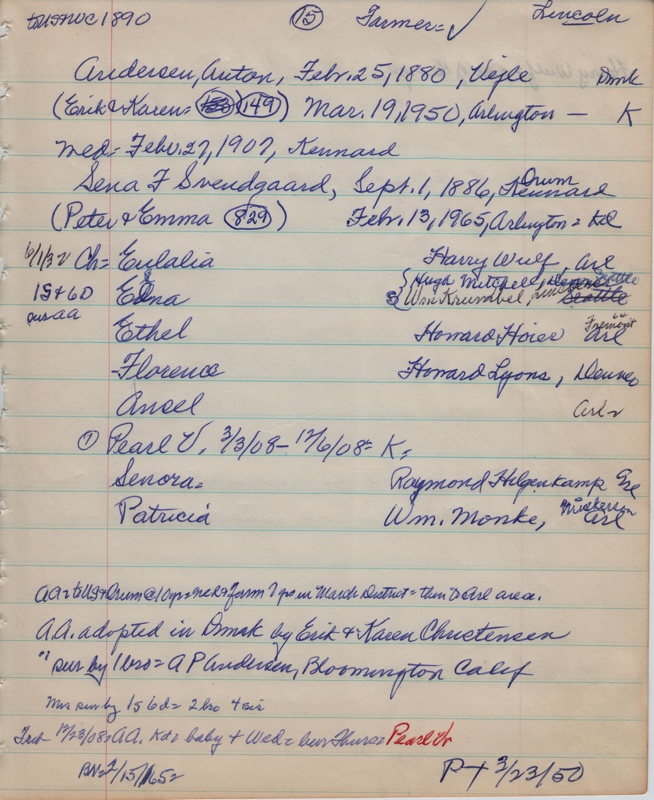 to US & NC 1890 (15) Farmer= ✓ Lincoln
Andersen, Anton, Febr. 25, 1880, Vejle Dmk
(Erik & Karen= (149)) Mar. 19, 1950, Arlington — K
med= Febr. 27, 1907, Kennard
Lena F Svendgaard, Sept. 1, 1886, Kennard Orum
(Peter & Emma (829)) Febr. 13, 1965, Arlington = Kd
6/1/32 Ch= Eulalia Harry Wulf, Arl
1S & 6D Edna Hugh Mitchell, Denver Seattle
sur AA Wm Krumbel, Seattle
Ethel Howard Hoier Arl Fremont 64
Florence Howard Lyons, Denver
Ansel Arl
(1) Pearl V. 3/3/08 – 12/6/08 = K=
Senora= Raymond Hilgenkamp Arl
Patricia Wm. Monke, Arl Nickerson
AA= to US & Orum @ 10 yrs = farm 7 yrs in District = then to Arl area.
A.A. adopted in Dmk by Erik & Karen Christensen
" sur by 1 bro = A P Andersen, Bloomington Calif
Mrs sur by 1S 6d = 2 bro 4 sis
12/23/08 = AA. Kd = baby + Wed = bur Thurs = Pearl V
BN= 2/15/65= P+ 3/23/50